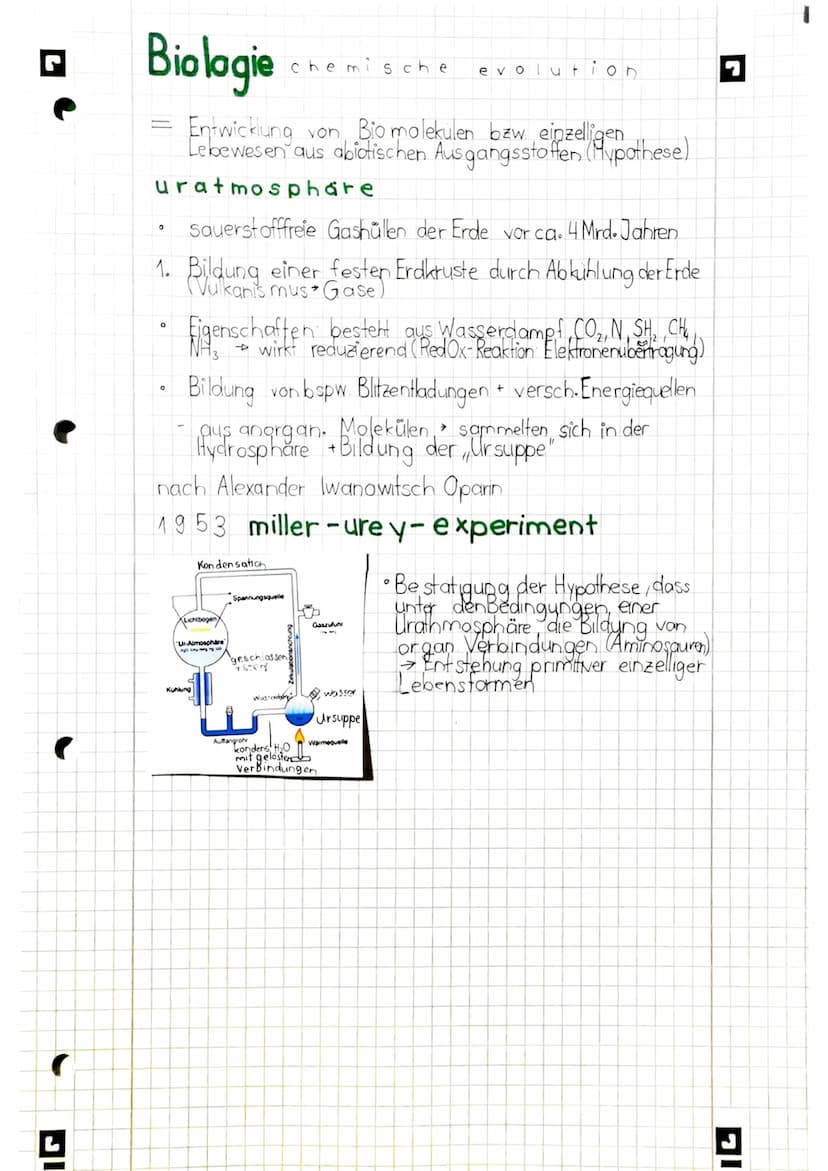 Biologie chemische evolution
= Entwicklung von Biomolekülen bzw einzelligen
Lebewesen aus abiotischen Ausgangsstoffen (Hypothese)
uratmosphäre
• sauerstofffreie Gashüllen der Erde vor ca. 4 Mrd. Jahren
1. Bildung einer festen Erdkruste durch Abkühlung der Erde
(Vulkanismus → Gase)
• Eigenschaften: besteht aus Wasserdampf, CO₂, N, SH₂, CH₄,
NH₃ → wirkt reduzierend (RedOx-Reaktion Elektronenübertragung)
• Bildung von bspw. Blitzentladungen + versch. Energiequellen
- aus anorgan. Molekülen → sammelten sich in der
Hydrosphäre + Bildung der „Ursuppe"
nach Alexander Iwanowitsch Oparin
1953 miller-urey-experiment
Kondensation
Spannungsquelle
Lichtbogen
Gaszufuhr
"Ur-Atmosphäre"
Zirkulationsrichtung
geschlossen
+ steril
Kühlung
Wasserdampf
Wasser
Ursuppe
Auffangrohr
Wärmequelle
kondens. H₂O
mit gelösten
Verbindungen
• Bestätigung der Hypothese, dass
unter den Bedingungen einer
Urathmosphäre die Bildung von
organ. Verbindungen (Aminosäuren)
→ Entstehung primitiver einzelliger
Lebensformen